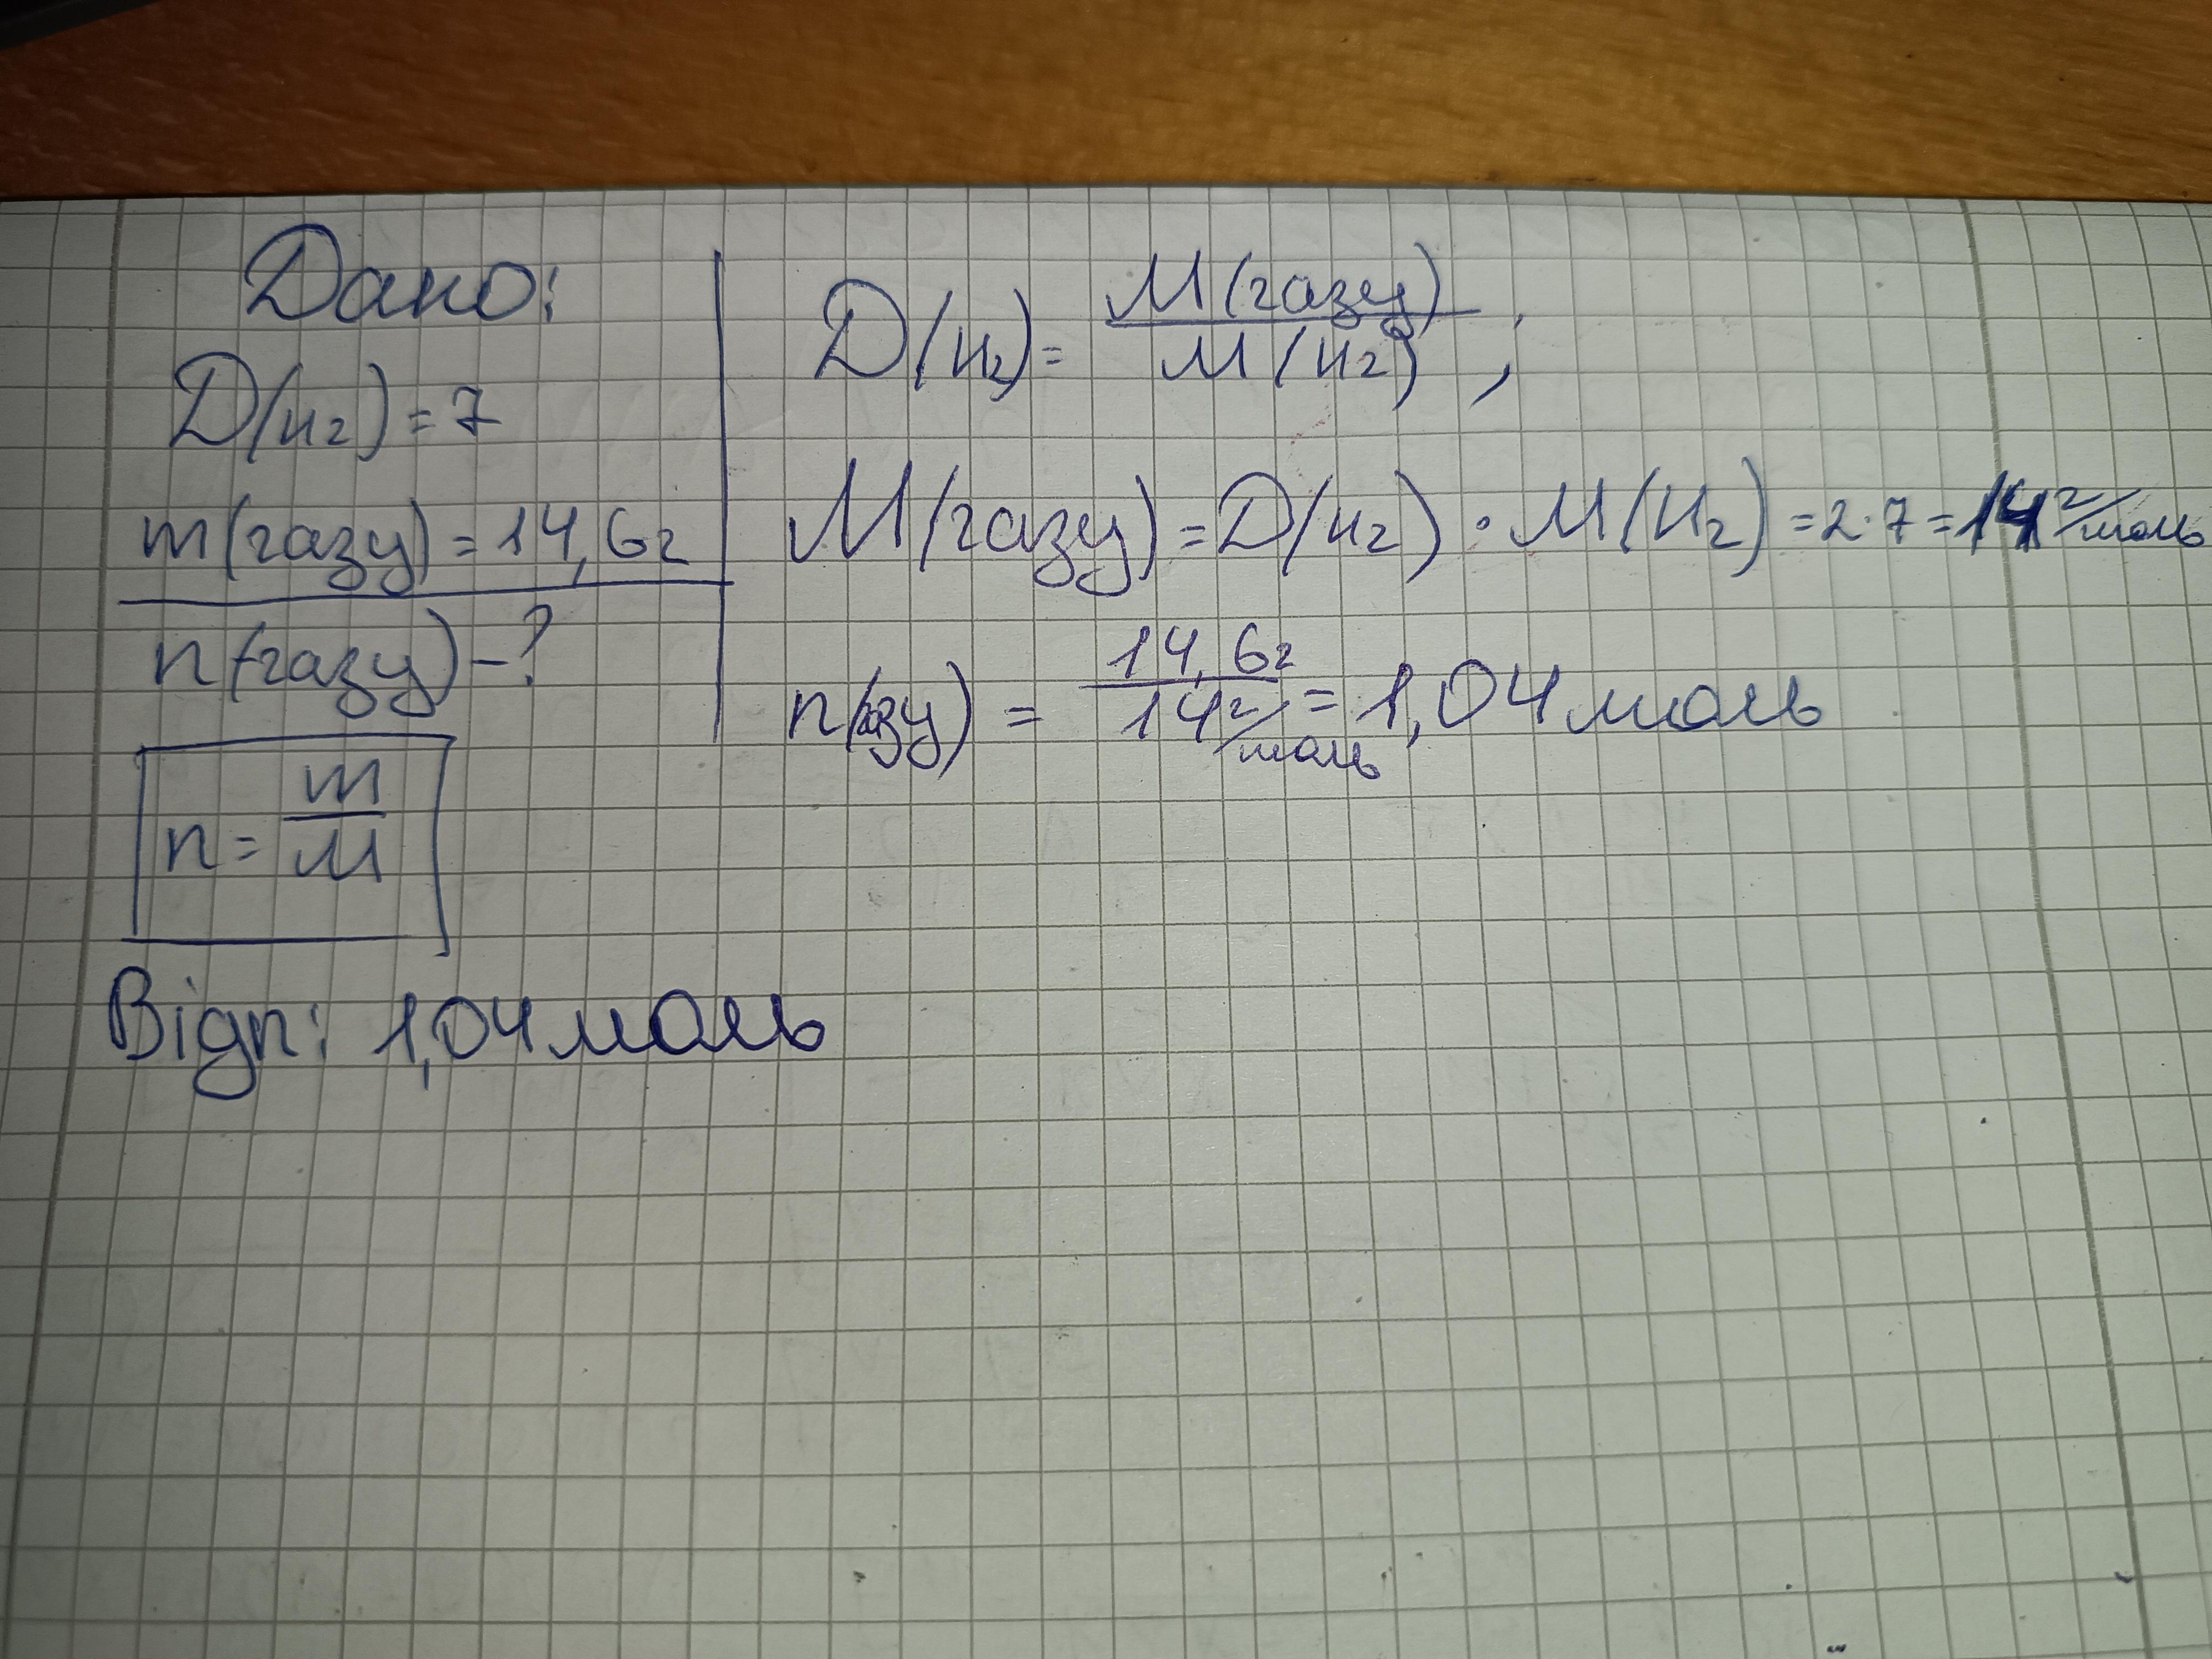 Дано:
D(H2) = 7
m(газу) = 14,6г
n(газу) - ?
n = m/M
D(H2) = M(газу)/M(H2) ;
M(газу) = D(H2) · M(H2) = 2·7 = 14 г/моль
n(газу) = 14,6г/14 г/моль = 1,04 моль
Відп: 1,04 моль